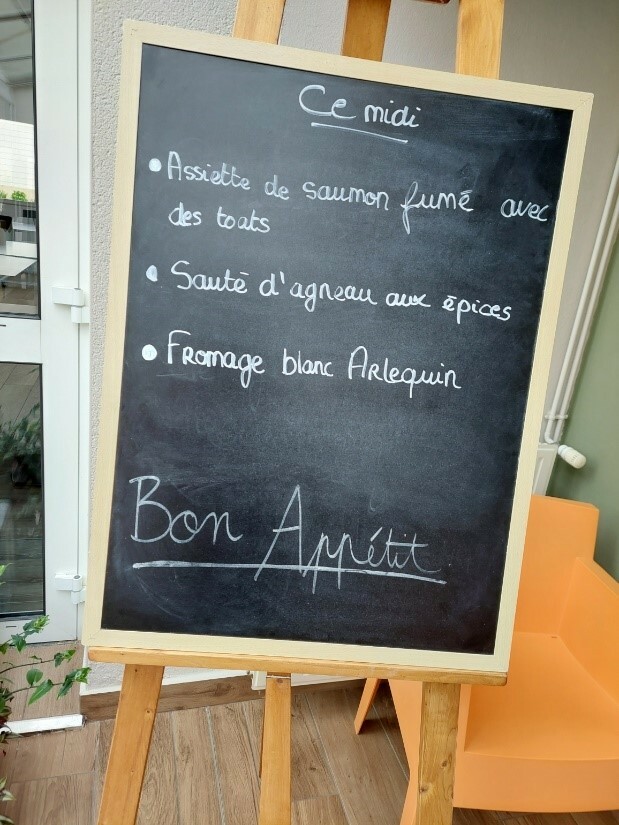 Ce midi
• Assiette de saumon fumé avec
des toats
• Sauté d'agneau aux épices
• Fromage blanc Arlequin
Bon Appétit